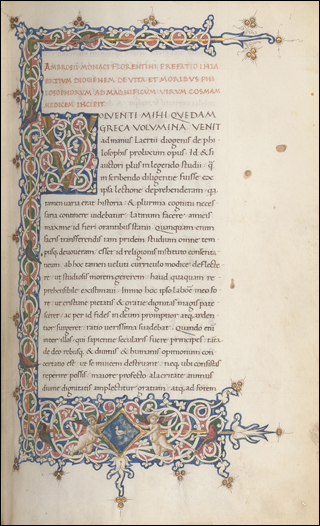 AMBROSII MONACI FLORENTINI PREFATIO IN LA
ERTIVM DIOGENEM DE VITA ET MORIBVS PHI
LOSOPHORVM AD MAGNIFICVM VIRVM COSMAM
MEDICEN INCIPIT
VOLVENTI MIHI QVEDAM
GRECA VOLVMINA VENIT
ad manus Laertii diogenis de phi
losophis prolixum opus. Id & si
auctori plus in legendo studii q̃
in scribendo diligentie fuisse ex
ipsa lectione deprehenderam: qa
tamen varia erat historia & plurima cognitu neces
saria continere videbatur: Latinum facere amicis
maxime id fieri orantibus statui. Quanquam enim
huius transferendi iam pridem studium omne tem
pusq
ut studiosis morem gererem haud quaquam re
prehensibile existimavi. Immo hoc ipso laborem meo fo
re ut christiane pietatis & gratie dignitas magis pate
sceret: ac per id fides in deum promptior atq; arden
tior surgeret ratio verissima suadebat. Quando enim
inter illos qui sapientie secularis fuere principes tanta
de deo rebusq; & divinis & humanis opinionum con
certatio est ut se invicem destruant: neq; ubi consistas
repperire possis: maiore profecto alacritate animus
divine dignitatis amplectitur gratiam: atq; ad fontem